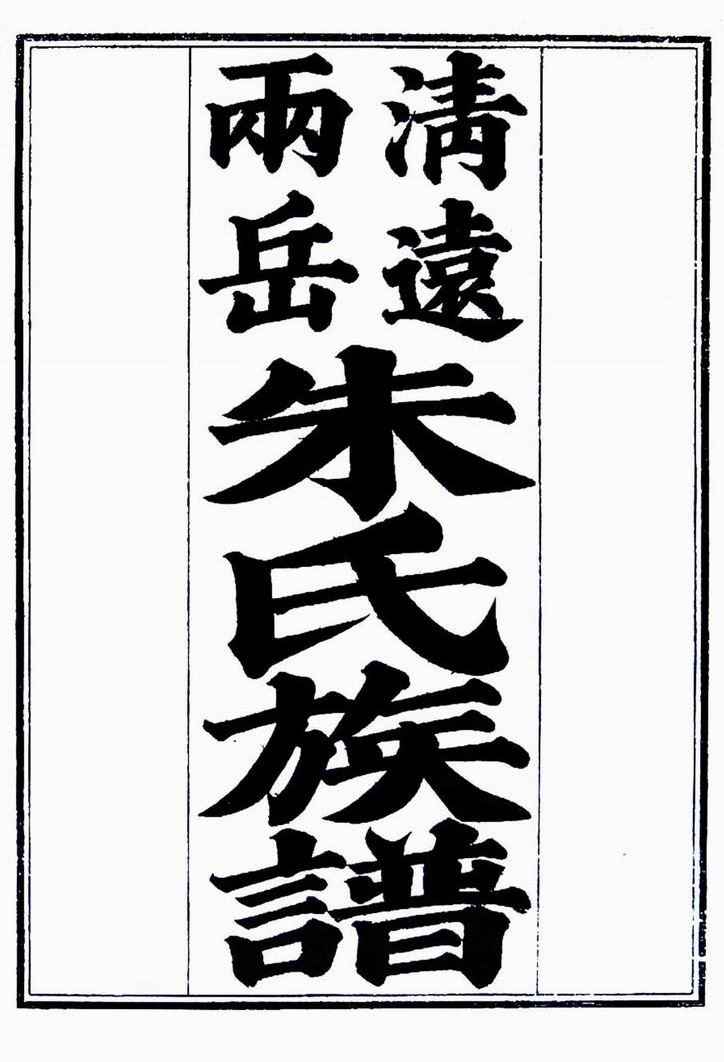 清遠
兩岳
朱氏族譜